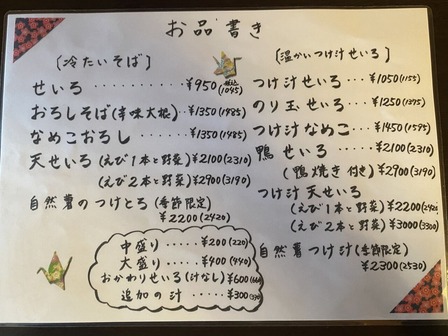 お品書き
〔冷たいそば〕
せいろ・・・・・¥950 税込(1045)
おろしそば(辛味大根)・¥1350(1485)
なめこおろし・・・・¥1350(1485)
天せいろ(えび1本と野菜)¥2100(2310)
(えび2本と野菜)¥2900(3190)
自然薯のつけとろ(季節限定)
¥2200(2420)
中盛り・・・・・¥200(220)
大盛り・・・・・¥400(440)
おかわりせいろ(汁なし)¥600
追加の汁・・・¥300
〔温かいつけ汁せいろ〕
つけ汁せいろ・・・¥1050(1155)
のり玉せいろ・・・¥1250(1375)
つけ汁なめこ・・・¥1450(1595)
鴨せいろ・・・・¥2100(2310)
(鴨焼き付き)¥2900(3190)
つけ汁天せいろ
(えび1本と野菜)¥2200(2420)
(えび2本と野菜)¥3000(3300)
自然薯つけ汁(季節限定)
¥2300(2530)